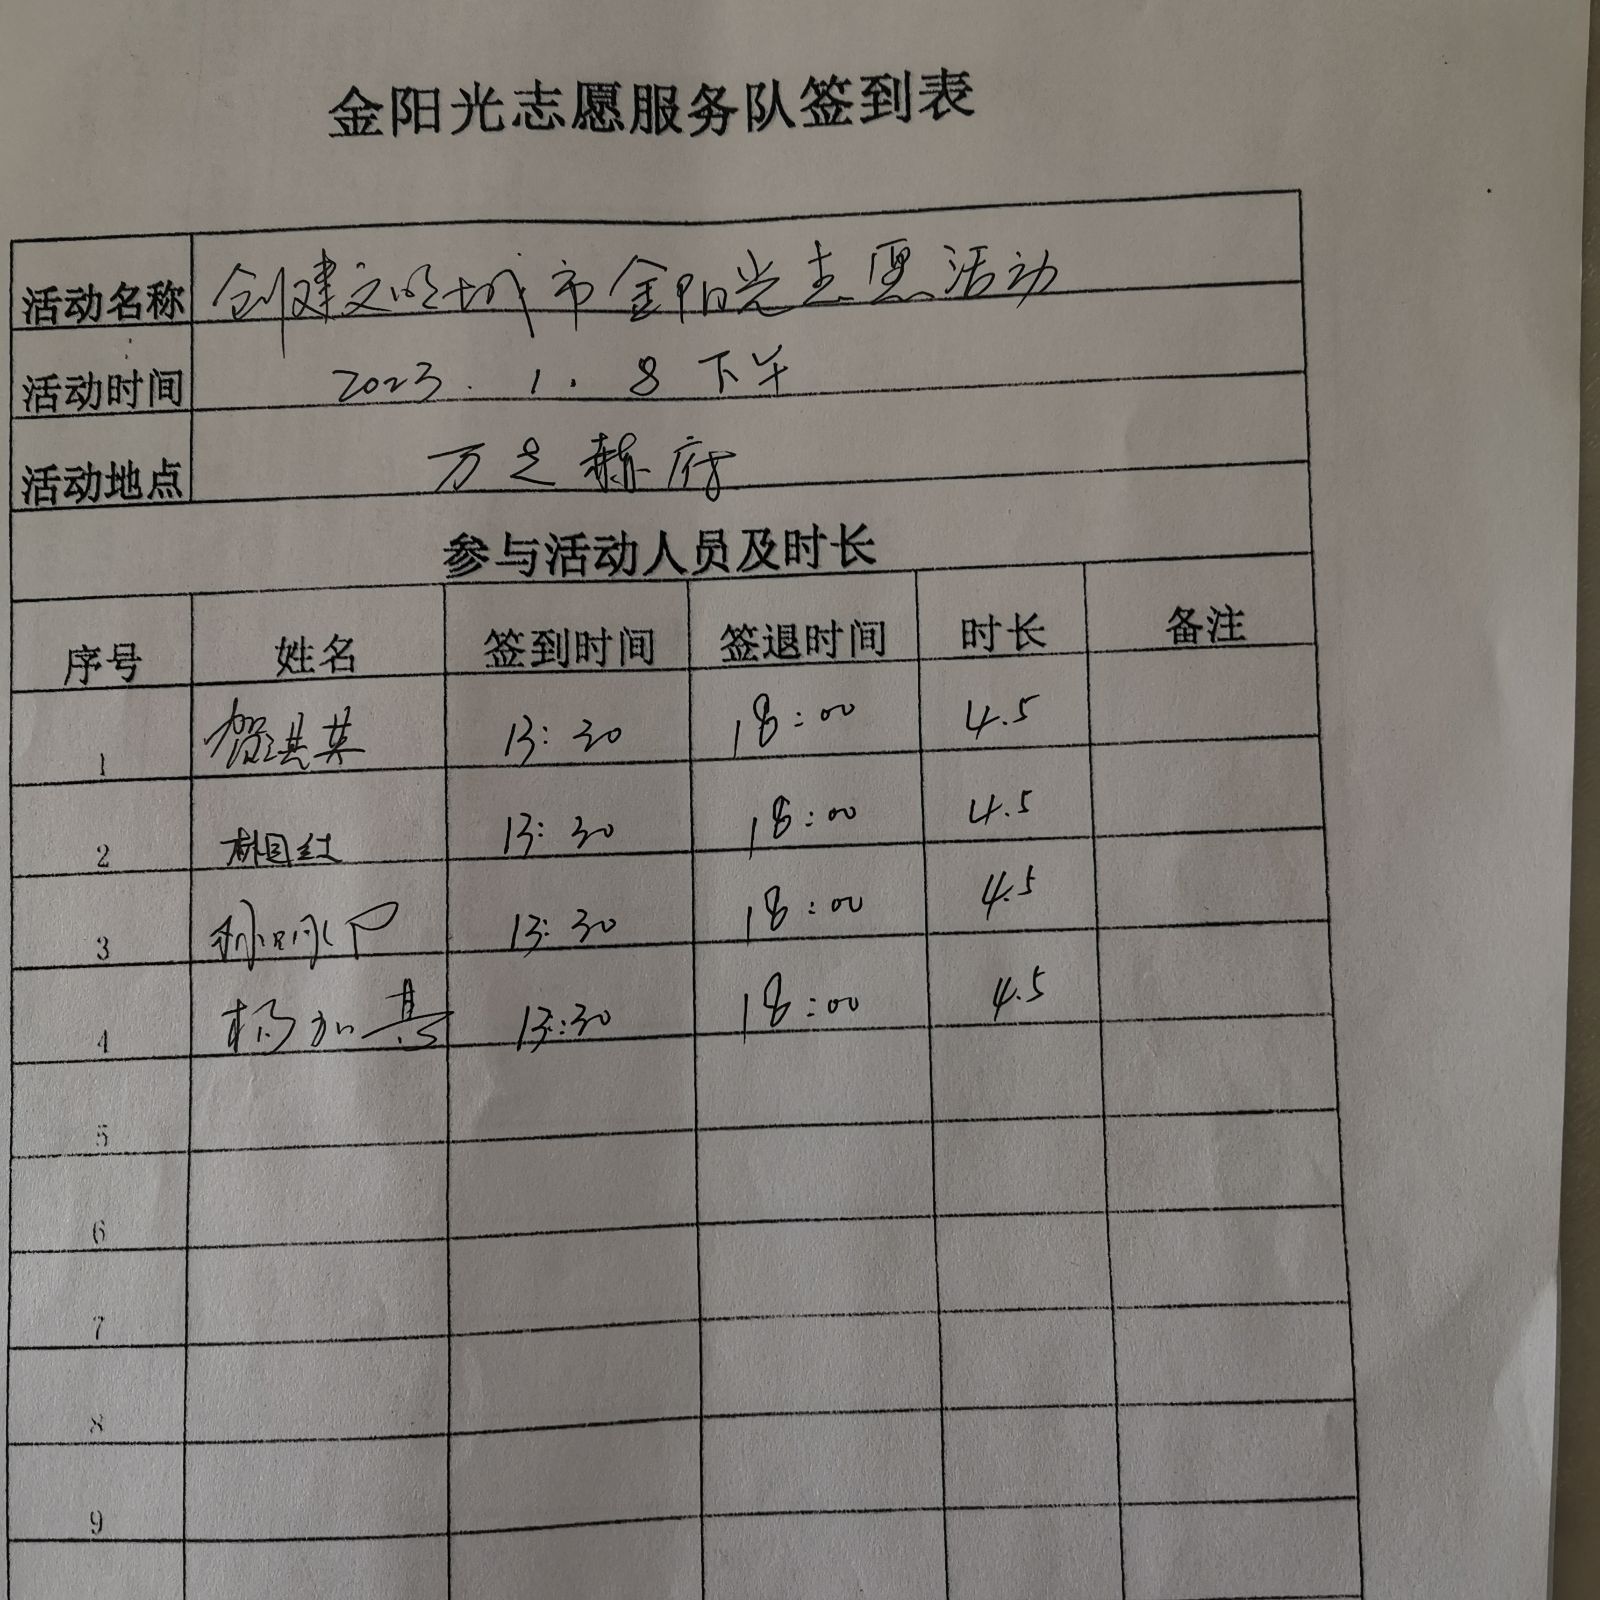 金阳光志愿服务队签到表
活动名称 创建文明城市金阳光志愿活动
活动时间 2023.1.8下午
活动地点 万足赫府
参与活动人员及时长
序号 姓名 签到时间 签退时间 时长 备注
1 贺洪英 13:30 18:00 4.5
2 13:30 18:00 4.5
3 13:30 18:00 4.5
4 杨加 13:30 18:00 4.5
5
6
7
8
9